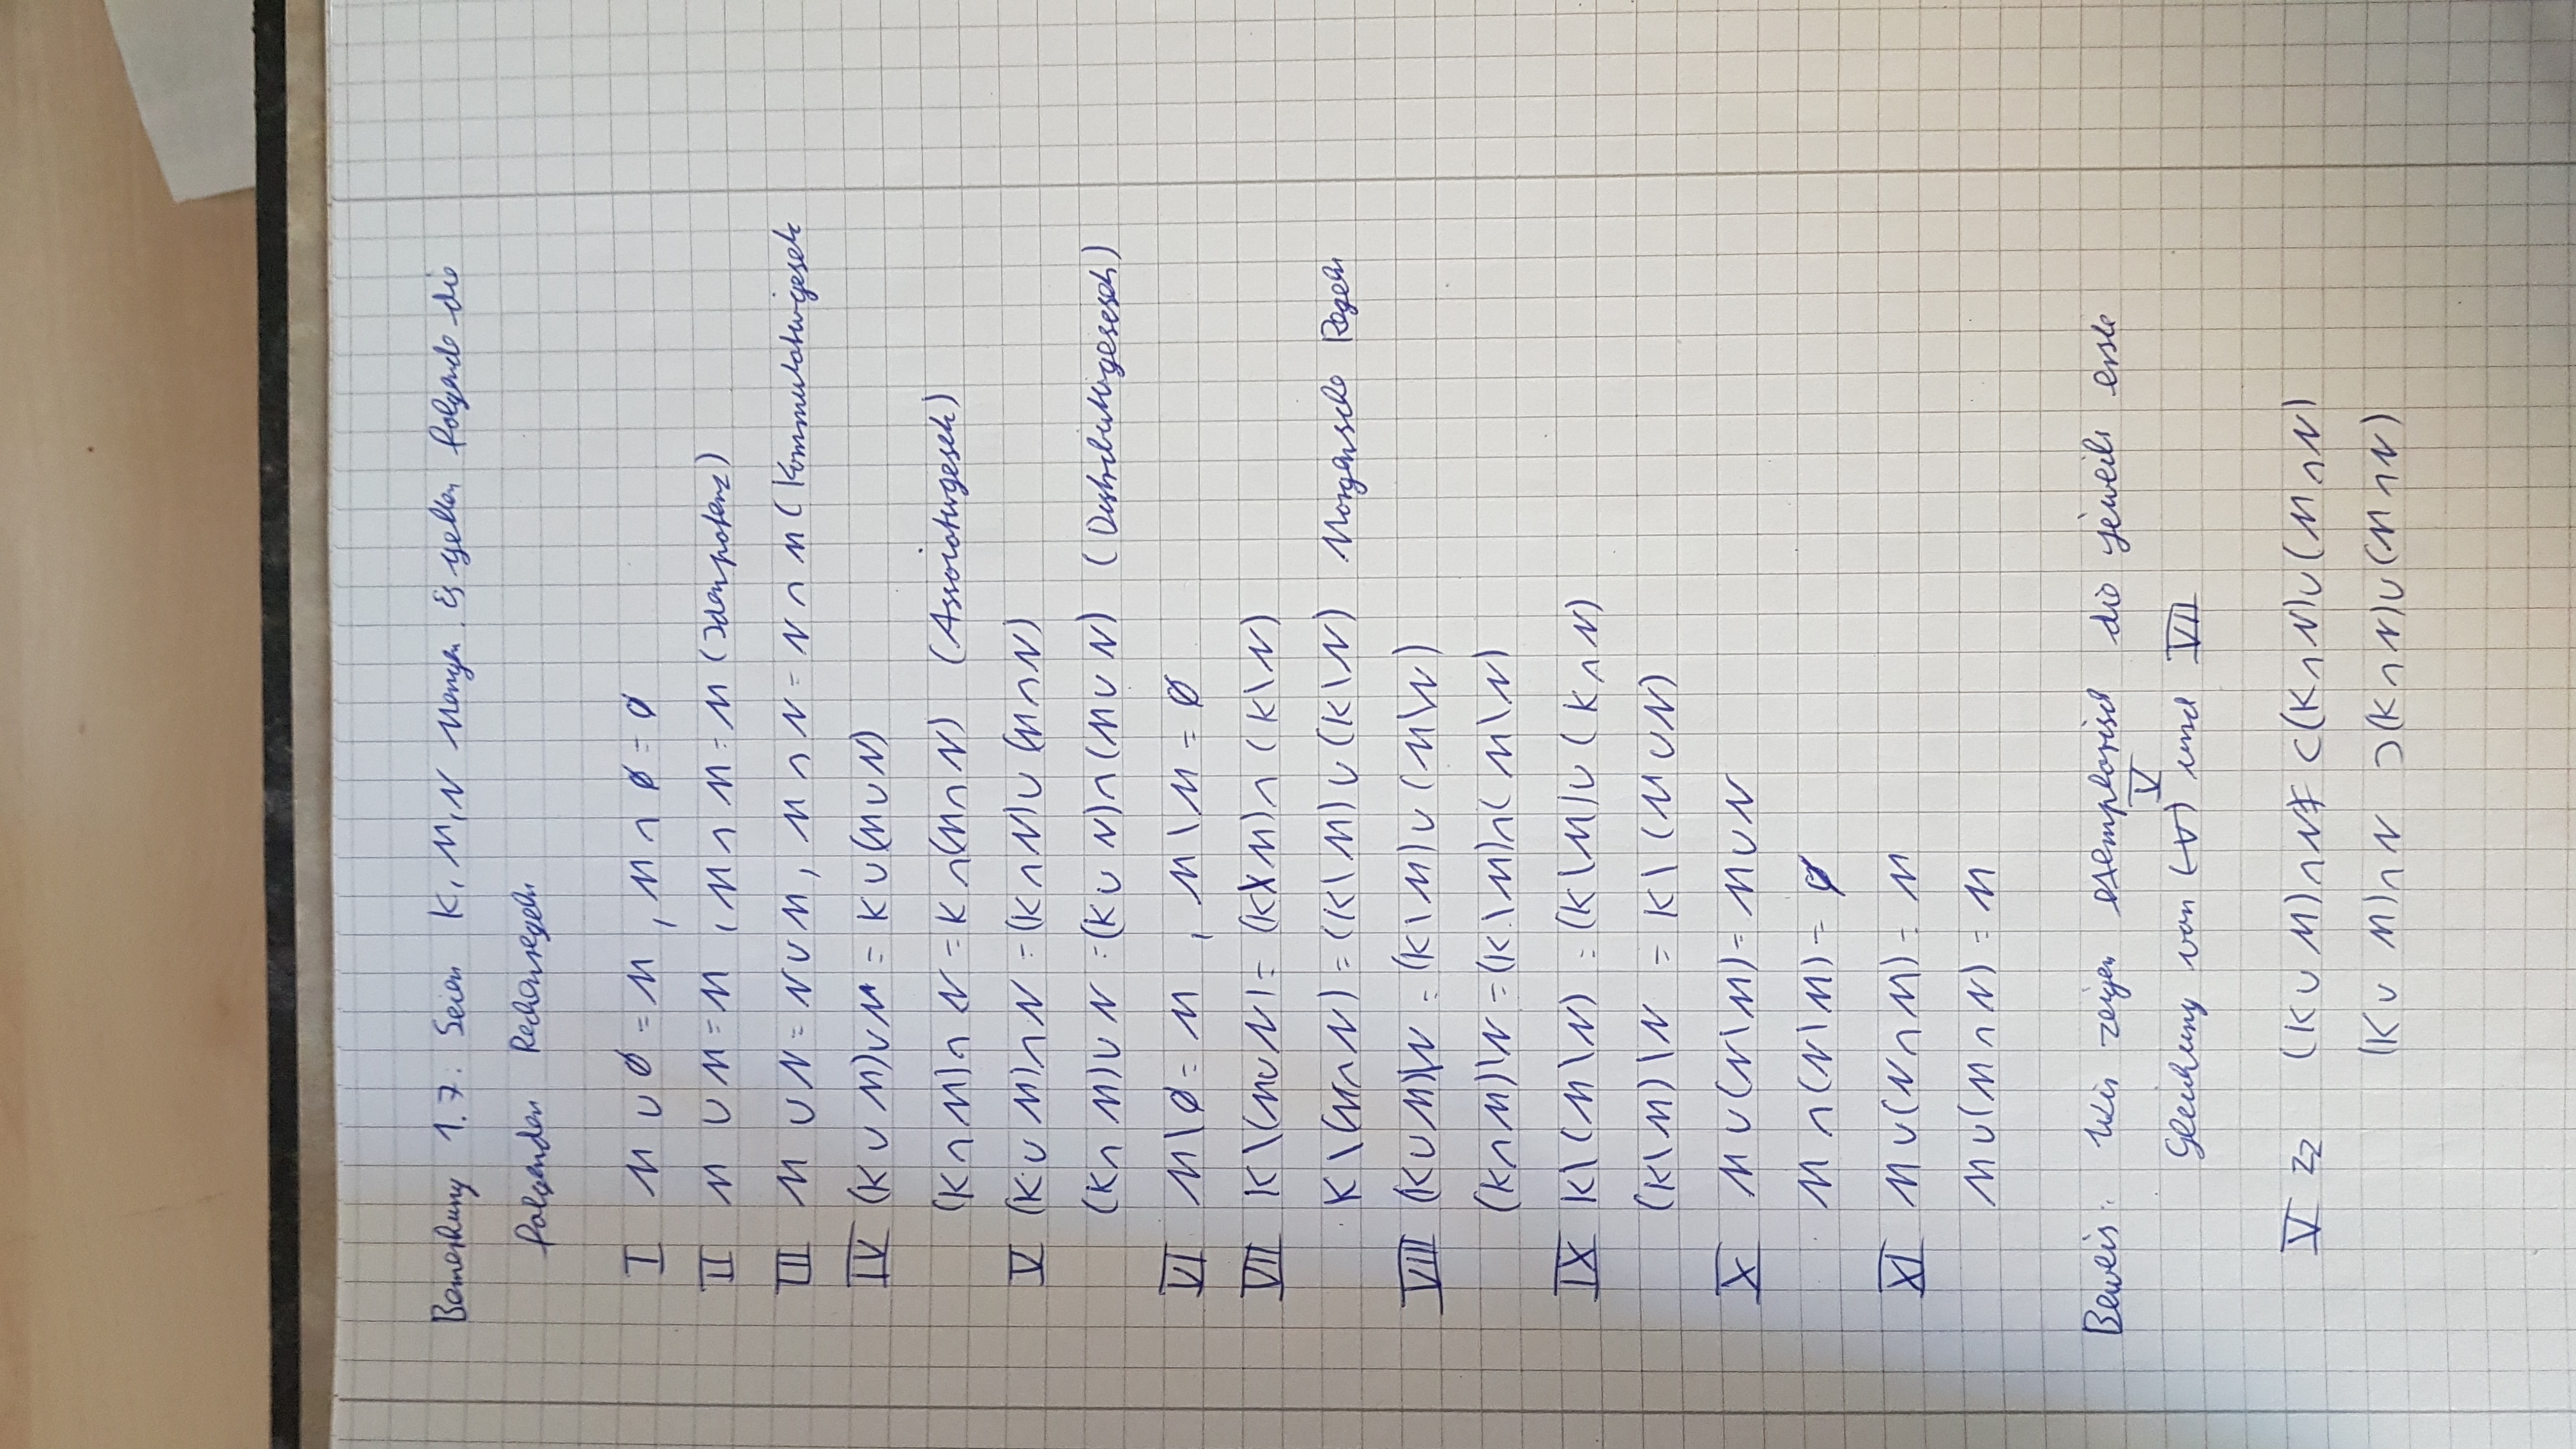 Bemerkung 1.7: Seien K, M, N Mengen. Es gelten folgende die
folgenden Rechenregeln
I M ∪ ∅ = M , M ∩ ∅ = ∅
II M ∪ M = M , M ∩ M = M (Idempotenz)
III M ∪ N = N ∪ M , M ∩ N = N ∩ M (Kommutativgesetz
IV (K ∪ M) ∪ M = K ∪ (M ∪ N)
(K ∩ M) ∩ N = K ∩ (M ∩ N) (Assoziativgesetz)
V (K ∪ M) ∩ N = (K ∩ N) ∪ (M ∩ N)
(K ∩ M) ∪ N = (K ∪ N) ∩ (M ∪ N) (Distributivgesetz)
VI M \ ∅ = M , M \ M = ∅
VII K \ (M ∪ N) = (K \ M) ∩ (K \ N)
K \ (M ∩ N) = (K \ M) ∪ (K \ N) Morgensche Regeln
VIII (K ∪ M) \ N = (K \ M) ∪ (M \ N)
(K ∩ M) \ N = (K \ M) ∩ (M \ N)
IX K \ (M \ N) = (K \ M) ∪ (K ∩ N)
(K \ M) \ N = K \ (M ∪ N)
X M ∪ (N \ M) = M ∪ N
M ∩ (N \ M) = ∅
XI M ∪ (N ∩ M) = M
M ∪ (M ∩ N) = M
Beweis: Wir zeigen exemplarisch die jeweils erste
Gleichung von V und VII
V zz (K ∪ M) ∩ N ⊂ (K ∩ N) ∪ (M ∩ N)
(K ∪ M) ∩ N ⊃ (K ∩ N) ∪ (M ∩ N)